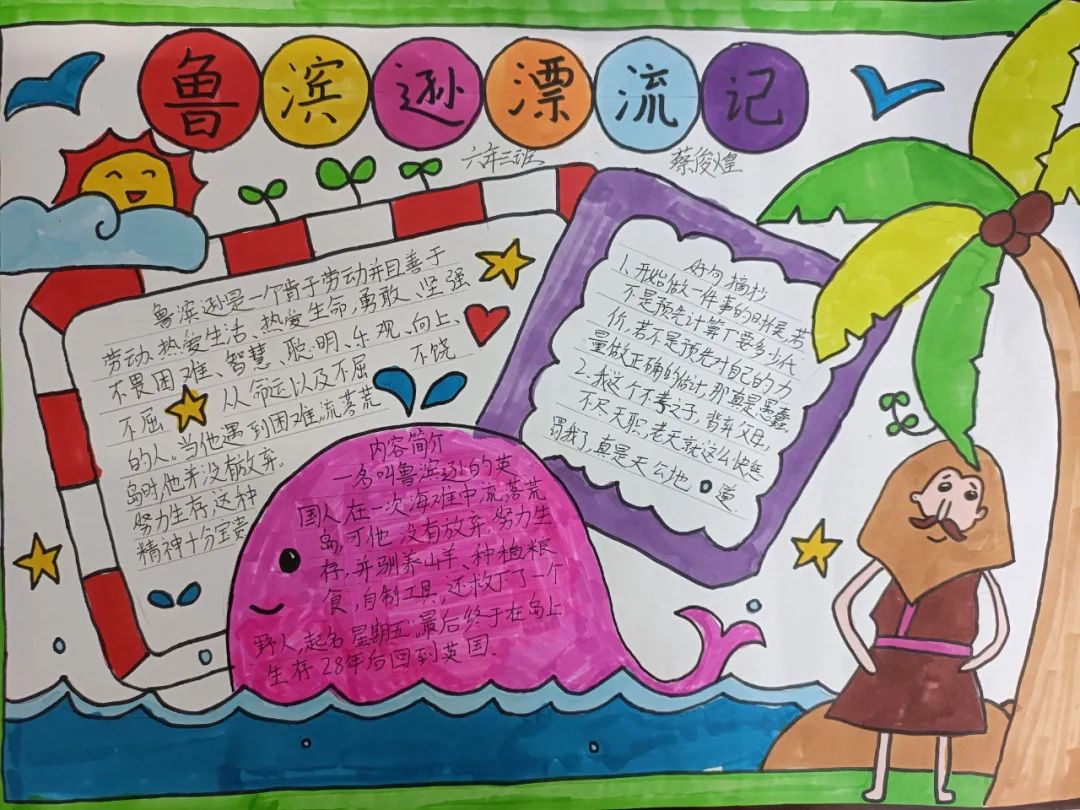 鲁滨逊漂流记
六年三班
蔡俊煌
鲁滨逊是一个肯于劳动并且善于
劳动、热爱生活、热爱生命,勇敢、坚强
不畏困难、智慧、聪明、乐观、向上、
不屈 从命运以及不屈 不饶
的人。当他遇到困难,流落荒
岛时,他并没有放弃。
努力生存,这种
精神十分宝贵
内容简介
一名叫鲁滨逊的英
国人在一次海难中流落荒
岛,可他没有放弃,努力生
存,并驯养山羊、种植粮
食,自制工具,还救下了一个
野人,起名星期五,最后终于在岛上
生存28年后回到英国。
好句摘抄
1、开始做一件事的时候,若
不是预先计算下要多少代
价,若不是预先对自己的力
量做正确的估计,那真是愚蠢。
2、我这个不孝之子,背弃父母,
不尽天职,老天就这么快惩
罚我了,真是天公地道